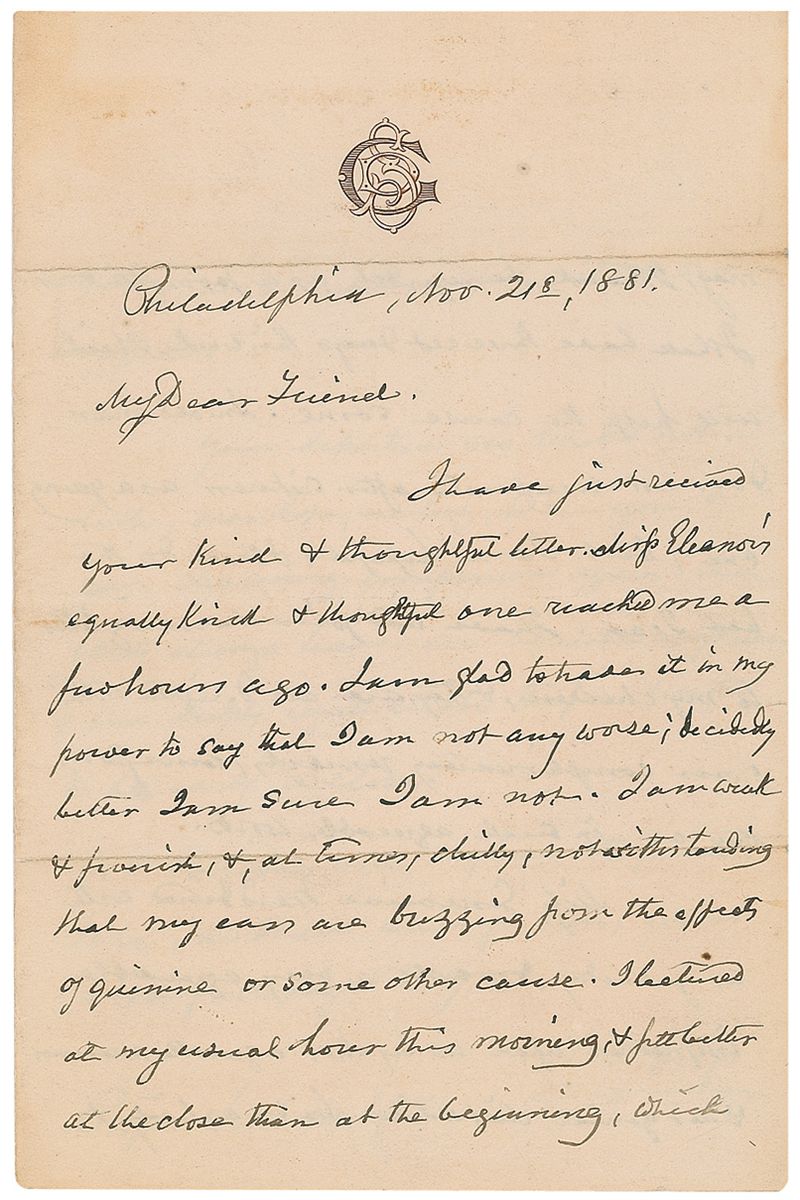 Philadelphia, Nov. 21st, 1881.
My Dear Friend.
I have just recieved
your kind & thoughtful letter. Miss Eleanor's
equally kind & thoughtful one reached me a
few hours ago. I am glad to have it in my
power to say that I am not any worse; decidedly
better I am sure I am not. I am weak
& feverish, &, at times, chilly, notwithstanding
that my ears are buzzing from the effects
of quinine or some other cause. I lectured
at my usual hour this morning, & felt better
at the close than at the beginning, which